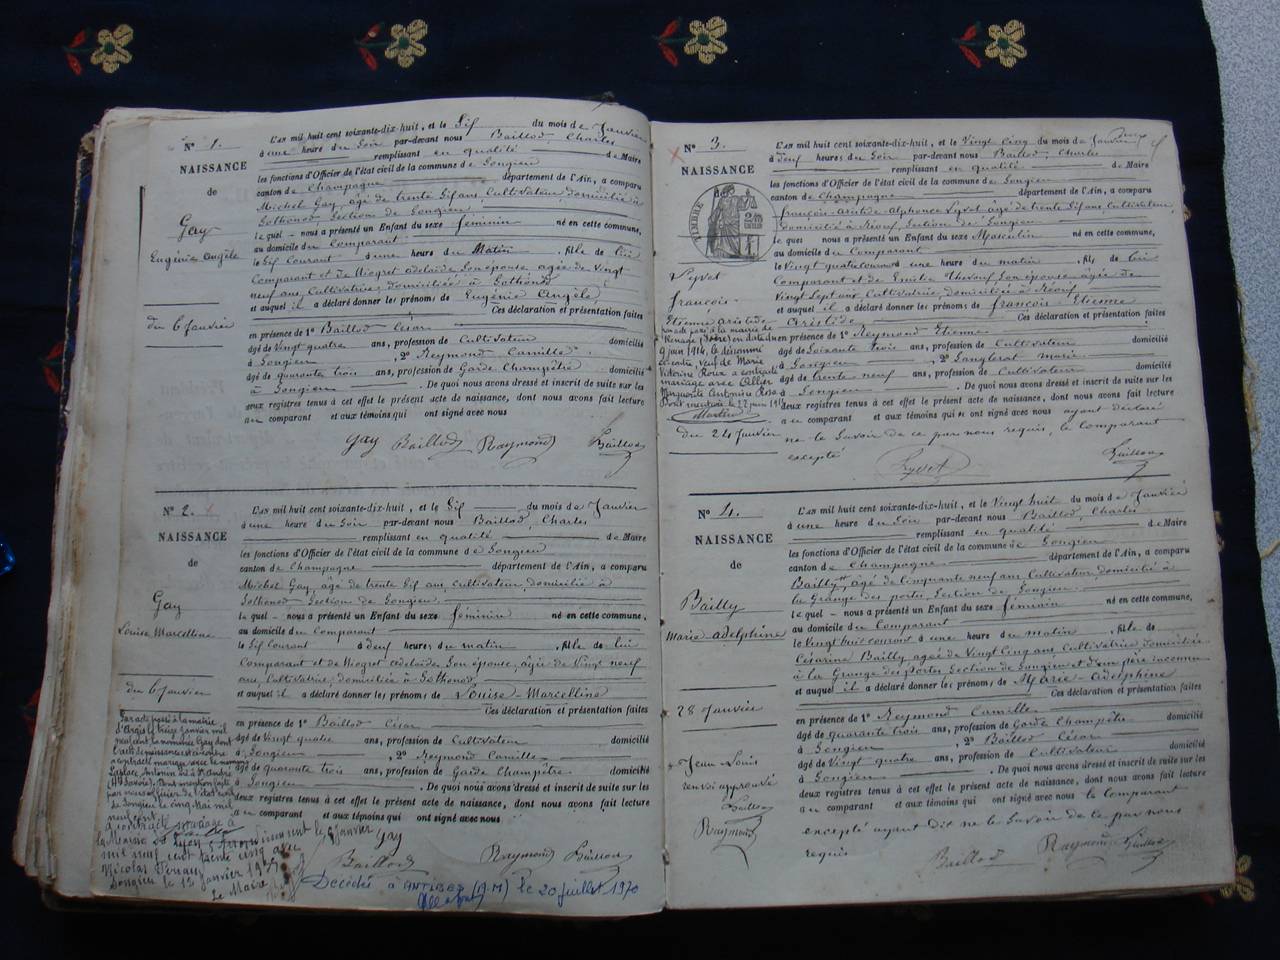 N° 1.
NAISSANCE
de
Gay
Eugénie Angèle
du 6 Janvier
L'AN mil huit cent soixante-dix-huit, et le Six du mois de Janvier
à une heure du Soir par-devant nous Baillod, Charles
remplissant en qualité de Maire
les fonctions d'Officier de l'état civil de la commune de Songieu
canton de Champagne département de l'Ain, a comparu
Michel Gay, âgé de trente Six ans, Cultivateur, domicilié à
Sothonod Section de Songieu,
lequel nous a présenté un Enfant du sexe féminin né en cette commune,
au domicile du Comparant
le Six Courant à une heure du Matin, fille de lui
Comparant et de Niogret adelaïde Son épouse agée de Vingt
neuf ans, Cultivatrice, domiciliée à Sothonod
et auquel il a déclaré donner les prénoms de Eugénie Angèle
Ces déclaration et présentation faites
en présence de 1° Baillod César
âgé de Vingt quatre ans, profession de Cultivateur domicilié
à Songieu, 2° Reymond Camille
âgé de quarante trois ans, profession de Garde Champêtre domicilié
à Songieu. De quoi nous avons dressé et inscrit de suite sur les
deux registres tenus à cet effet le présent acte de naissance, dont nous avons fait lecture
au comparant et aux témoins qui ont signé avec nous
Gay Baillod Raymond Baillod
N° 2.
NAISSANCE
de
Gay
Louise Marcelline
du 6 Janvier
L'AN mil huit cent soixante-dix-huit, et le Six du mois de Janvier
à une heure du Soir par-devant nous Baillod, Charles
remplissant en qualité de Maire
les fonctions d'Officier de l'état civil de la commune de Songieu
canton de Champagne département de l'Ain, a comparu
Michel Gay, âgé de trente Six ans, Cultivateur, domicilié à
Sothonod Section de Songieu,
lequel nous a présenté un Enfant du sexe féminin né en cette commune,
au domicile du Comparant
le Six Courant à deux heures du matin, fille de lui
Comparant et de Niogret adelaïde Son épouse, âgée de Vingt neuf
ans, Cultivatrice, domiciliée à Sothonod,
et auquel il a déclaré donner les prénoms de Louise-Marcelline
Ces déclaration et présentation faites
en présence de 1° Baillod César
âgé de Vingt quatre ans, profession de Cultivateur domicilié
à Songieu, 2° Reymond Camille
âgé de quarante trois ans, profession de Garde Champêtre domicilié
à Songieu. De quoi nous avons dressé et inscrit de suite sur les
deux registres tenus à cet effet le présent acte de naissance, dont nous avons fait lecture
au comparant et aux témoins qui ont signé avec nous
Gay
Baillod Raymond Baillod
Par acte passé à la mairie
le treize Janvier mil
neuf cent la nommée Gay dont
l'acte de naissance est ci-contre
a contracté mariage avec le nommé
Laplace Antonin
(Hte Savoie). Dont mention faite
par nous officier de l'état civil
de Songieu le cinq Mai mil
neuf cent
a contracté mariage à
la Mairie de Lyon 5e arrondissement le Janvier
mil neuf cent trente cinq avec
Nicolas
Songieu le 15 Janvier 1935
Le Maire
Décédée à ANTIBES (A.M) le 20 Juillet 1970
N° 3.
NAISSANCE
de
TIMBRE
Lyvet
françois
Etienne aristide
mairie de
9 juin 1914, le dénommé
ci-contre, veuf de Marie
Victorine Roux a contracté
mariage avec Ollier
Marguerite Antoinine Rosa
du 24 Janvier
L'AN mil huit cent soixante-dix-huit, et le Vingt Cinq du mois de Janvier
à deux heures du Soir par-devant nous Baillod, Charles
remplissant en qualité de Maire
les fonctions d'Officier de l'état civil de la commune de Songieu
canton de Champagne département de l'Ain, a comparu
françois Aristide Alphonse Lyvet âgé de trente Six ans, Cultivateur,
domicilié à Section de Songieu
lequel nous a présenté un Enfant du sexe Masculin né en cette commune,
au domicile du Comparant
le Vingt quatre courant à une heure du matin, fils de lui
Comparant et de Emilie Son épouse âgée de
Vingt Sept ans, Cultivatrice, domiciliée à
et auquel il a déclaré donner les prénoms de françois-Etienne
Aristide Ces déclaration et présentation faites
en présence de 1° Reymond Etienne
âgé de Soixante trois ans, profession de Cultivateur domicilié
à Songieu, 2° Sanglerat Marin
âgé de trente neuf ans, profession de Cultivateur domicilié
à Songieu. De quoi nous avons dressé et inscrit de suite sur les
deux registres tenus à cet effet le présent acte de naissance, dont nous avons fait lecture
au comparant et aux témoins qui ont signé avec nous ayant déclaré
ne le Savoir de ce par nous requis, le Comparant
excepté
Lyvet Baillod
N° 4.
NAISSANCE
de
Bailly
Marie-adelphine
28 Janvier
Jean Louis
renvoi approuvé
Baillod
Raymond
L'AN mil huit cent soixante-dix-huit, et le Vingt huit du mois de Janvier
à une heure du Soir par-devant nous Baillod, Charles
remplissant en qualité de Maire
les fonctions d'Officier de l'état civil de la commune de Songieu
canton de Champagne département de l'Ain, a comparu
Bailly, âgé de Cinquante neuf ans Cultivateur, domicilié à
la Grange des portes, Section de Songieu,
lequel nous a présenté un Enfant du sexe féminin né en cette commune,
au domicile du Comparant
le Vingt huit courant à une heure du matin, fille de
Césarine Bailly agée de Vingt Cinq ans Cultivatrice domiciliée
à la Grange des portes Section de Songieu et d'un père inconnu
et auquel il a déclaré donner les prénoms de Marie-Adelphine
Ces déclaration et présentation faites
en présence de 1° Reymond Camille
âgé de quarante trois ans, profession de Garde Champêtre domicilié
à Songieu, 2° Baillod César
âgé de Vingt quatre ans, profession de Cultivateur domicilié
à Songieu. De quoi nous avons dressé et inscrit de suite sur les
deux registres tenus à cet effet le présent acte de naissance, dont nous avons fait lecture
au comparant et aux témoins qui ont signé avec nous le Comparant
excepté ayant dit ne le Savoir de ce par nous
requis
Baillod Raymond Baillod